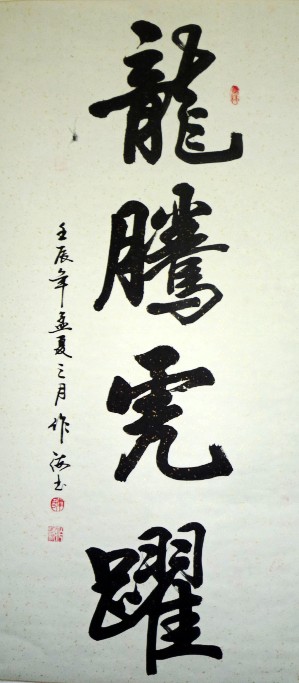 龍騰虎躍
壬辰年孟夏之月作海书